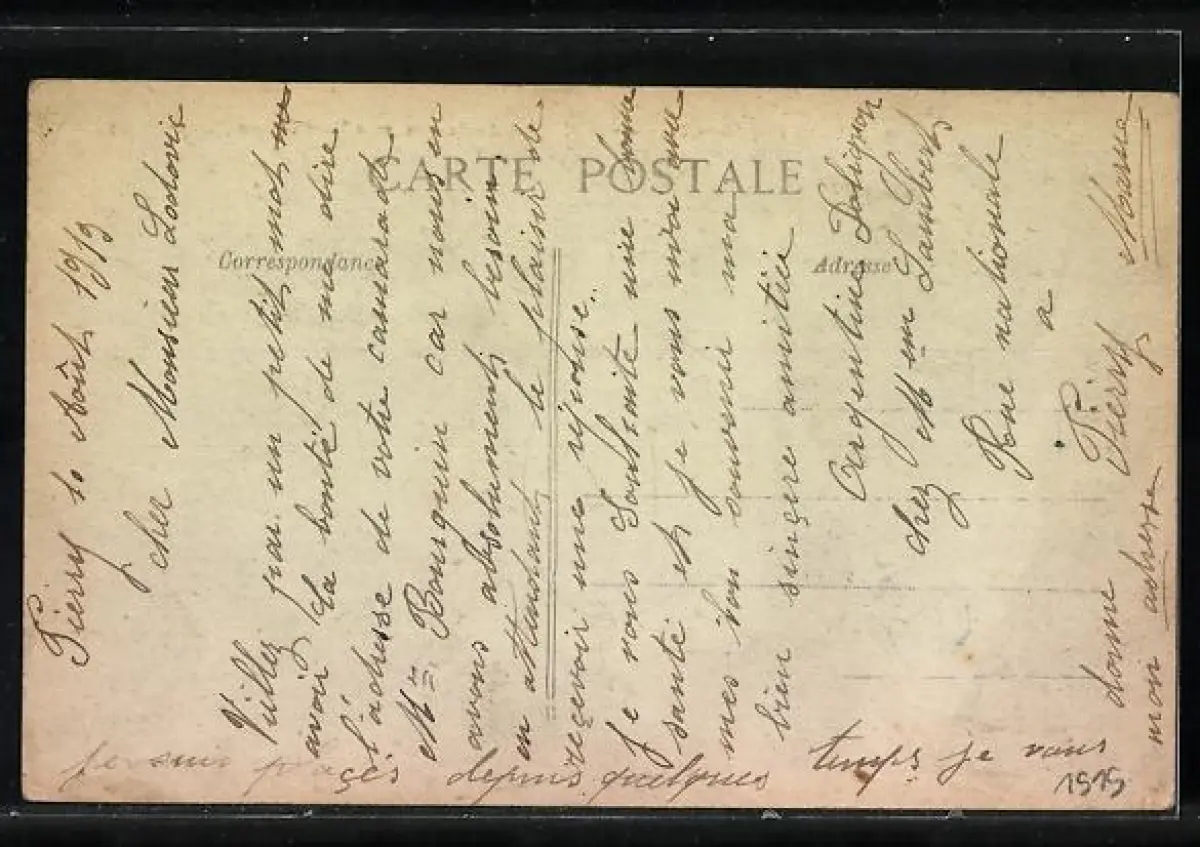 CARTE POSTALE
Correspondance
Adresse
Pierry 10 Août 1915
cher Monsieur Lodovic
Villez par un petit mot m
avoir la bonté de me dire
l'adresse de votre camarade
Mr Bourquin car nous en
avons absolument besoin,
en attendant le plaisir de
reçevoir une réponse.
je vous Souhaite une bonne
santé et je vous envoi une
mes bon souvenir ma
bien sinçère amitiée
Argentine
chez Mem Lambert
Rue nationale
a
Pierry Marne
je suis plaçés depuis quelques temps je vous
donne
mon adresse
1915